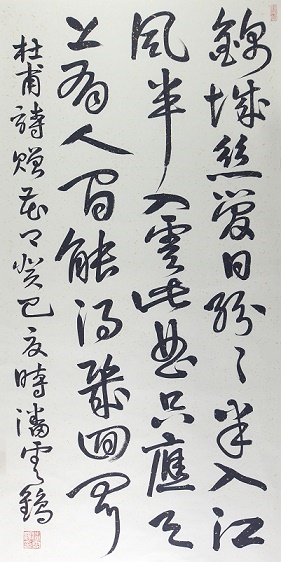 錦城絲管日紛〻半入江
風半入雲此曲只應天
上有人間能得幾回聞
杜甫詩贈花卿癸巳夏時潘雲鶴